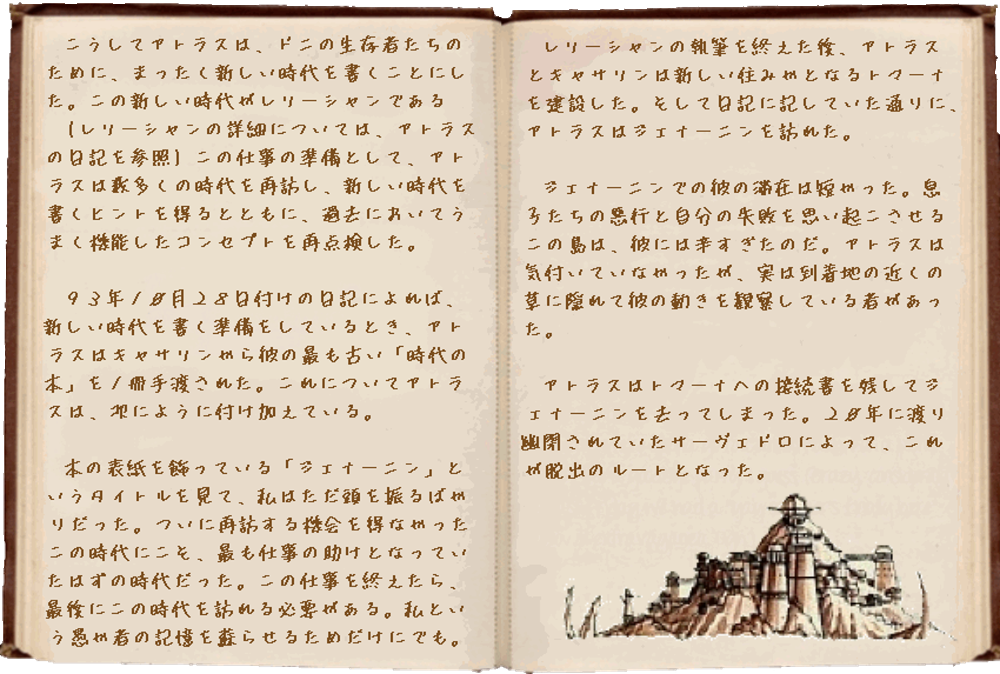 こうしてアトラスは、ドニの生存者たちの
ために、まったく新しい時代を書くことにし
た。この新しい時代がレリーシャンである
(レリーシャンの詳細については、アトラス
の日記を参照)この仕事の準備として、アト
ラスは数多くの時代を再訪し、新しい時代を
書くヒントを得るとともに、過去においてう
まく機能したコンセプトを再点検した。
93年10月28日付けの日記によれば、
新しい時代を書く準備をしているとき、アト
ラスはキャサリンから彼の最も古い「時代の
本」を1冊手渡された。これについてアトラ
スは、次にように付け加えている。
本の表紙を飾っている「ジェナーニン」と
いうタイトルを見て、私はただ頭を振るばか
りだった。ついに再訪する機会を得なかった
この時代にこそ、最も仕事の助けとなってい
たはずの時代だった。この仕事を終えたら、
最後にこの時代を訪れる必要がある。私とい
う愚か者の記憶を蘇らせるためだけにでも。
レリーシャンの執筆を終えた後、アトラス
とキャサリンは新しい住みかとなるトマーナ
を建設した。そして日記に記していた通りに、
アトラスはジェナーニンを訪れた。
ジェナーニンでの彼の滞在は短かった。息
子たちの悪行と自分の失敗を思い起こさせる
この島は、彼には辛すぎたのだ。アトラスは
気付いていなかったが、実は到着地の近くの
草に隠れて彼の動きを観察している者があっ
た。
アトラスはトマーナへの接続書を残してジ
ェナーニンを去ってしまった。20年に渡り
幽閉されていたサーヴェドロによって、これ
が脱出のルートとなった。